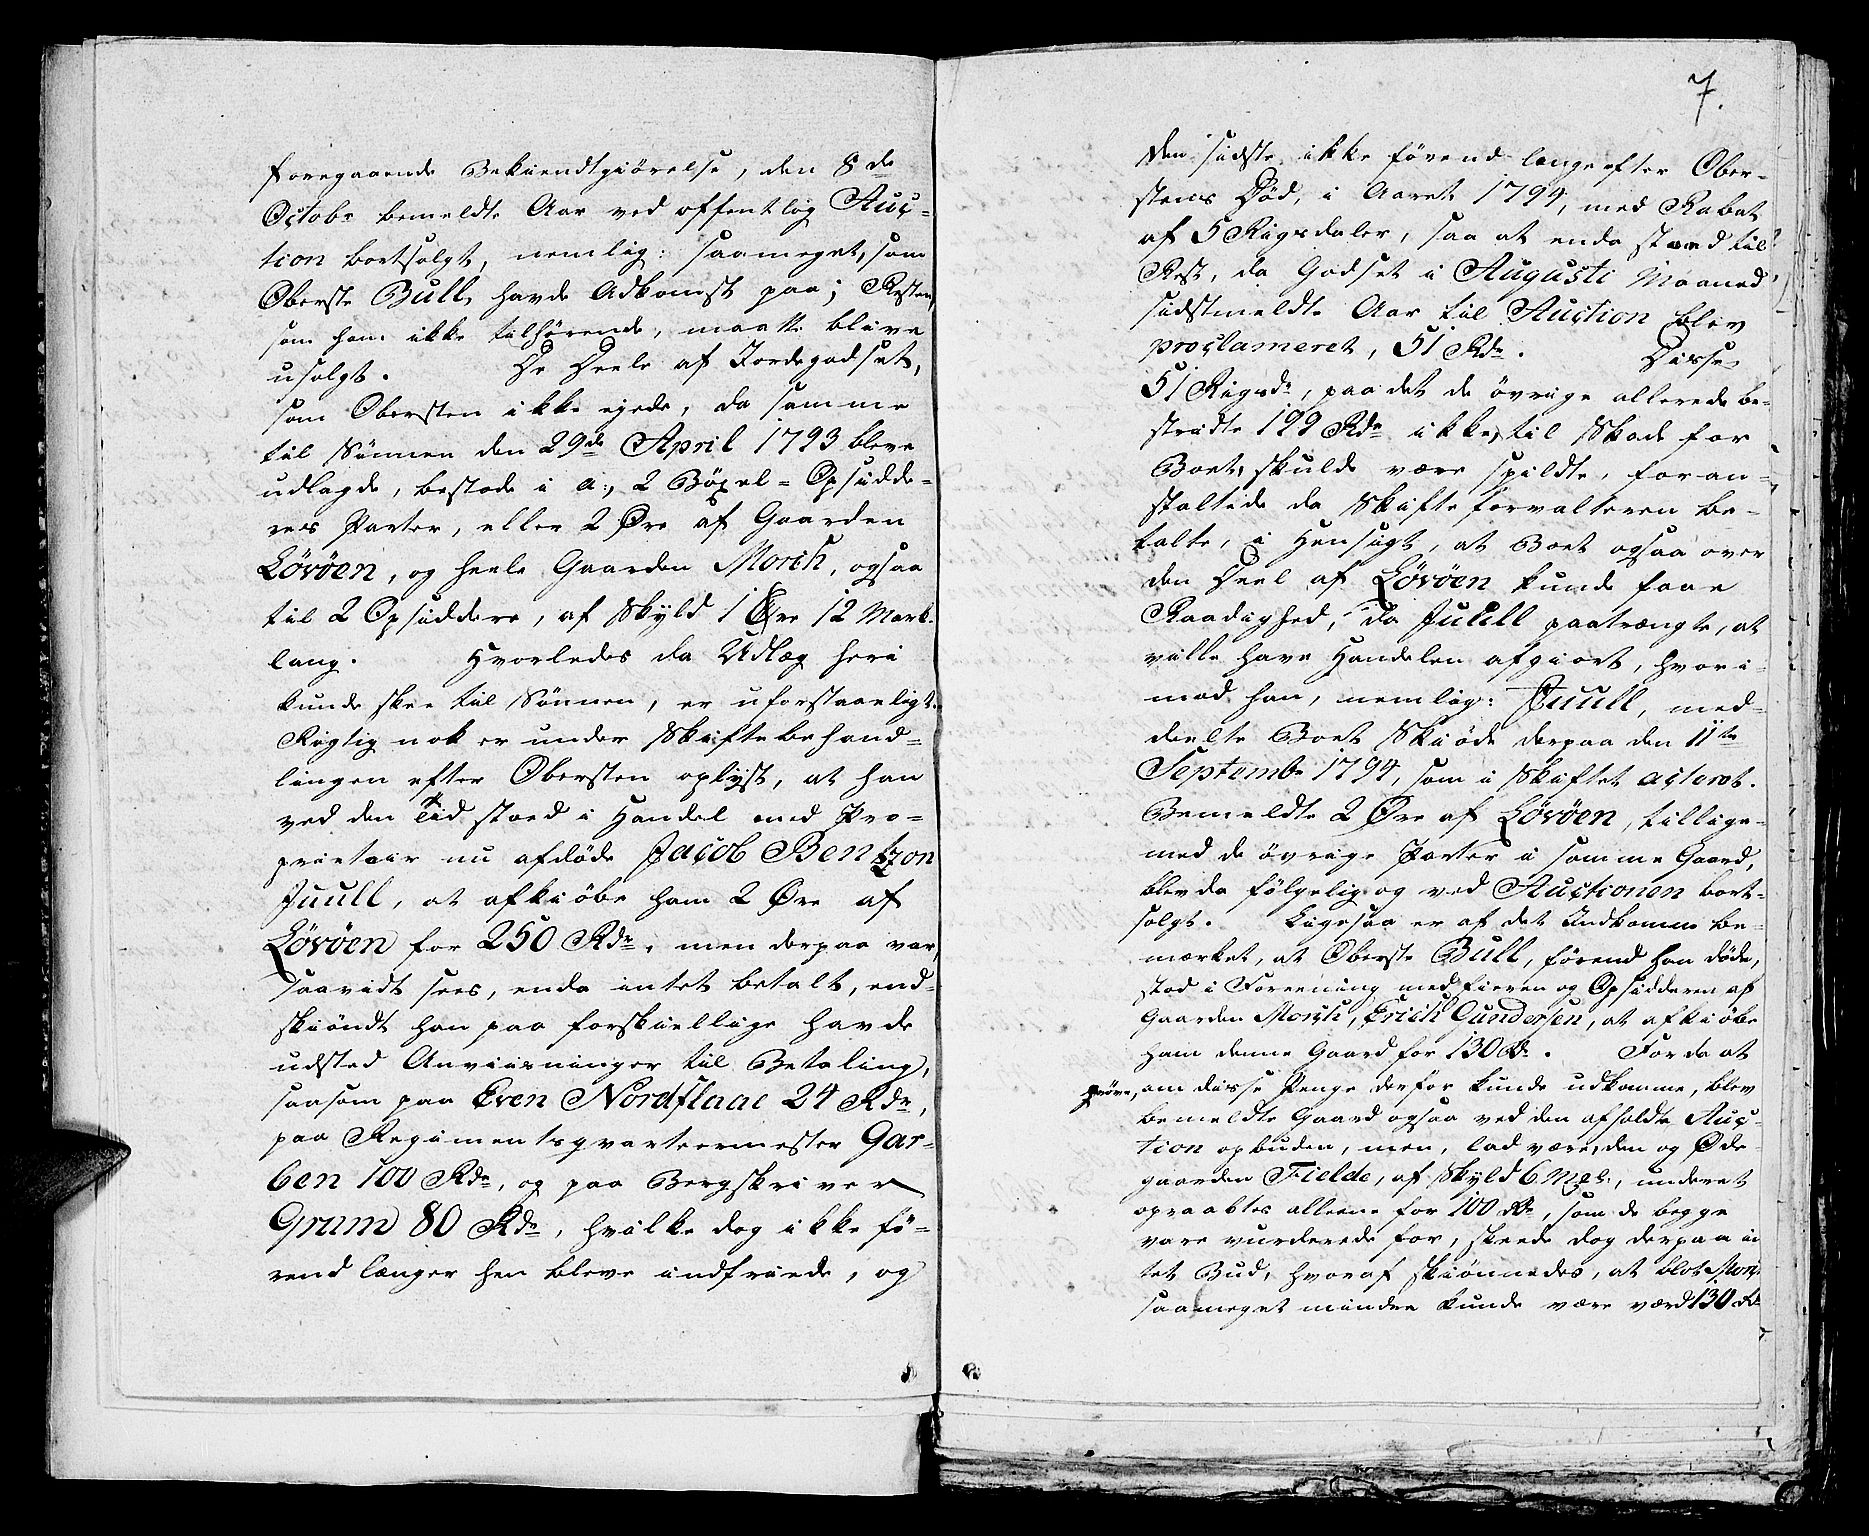 foregaaende Bekiendtgiörelse, den 8de
Octobr bemeldte Aar ved offentlig Auc-
tion bortsolgt, nemlig: saameget, som
Oberste Bull havde Adkomst paa; Resten,
som ham ikke tilhörende, maatte blive
usolgt. De Deele af Jordegodset,
som Obersten ikke ejede, da samme
til Sönnen den 29de April 1793 bleve
udlagde, bestode i a:, 2 Böxel-Opsidde-
res Parter, eller 2 Öre af Gaarden
Lövöen, og heele Gaarden Morch, ogsaa
til 2 Opsiddere, af Skyld 1 Öre 12 Mark-
laug. Hvorledes da Udlæg heri
kunde skee til Sönnen, er uforstaaeligt.
Rigtig nok er under Skiftebehand-
lingen efter Obersten oplyst, at han
ved den Tid stoed i Handel med Pro-
prietair nu afdöde Jacob Bentzon
Juull, at afkiöbe ham 2 Öre af
Lövöen for 250 Rdr, men derpaa var,
saavidt sees, enda intet betalt, end-
skiöndt han paa forskiellige havde
udsted Anviisninger til Betaling,
saasom paa Even Nordflaae 24 Rdr,
paa Regimentsqvarteermester Gar-
ben 100 Rdr, og paa Bergskriver
Grum 80 Rdr, hvilke dog ikke fö-
rend længer hen bleve indfriede, og
7.
den sidste ikke förend længe efter Ober-
stens Död, i Aaret 1794, med Rabat
af 5 Rigsdaler, saa at enda stoed til
Rest, da Godset i Augusti Maaned
sidstmeldte Aar til Auction blev
proclameret, 51 Rdr. Disse
51 Rigsdr, paa det de övrige allerede be-
stridte 199 Rdr ikke, til Skade for
Boet, skulde være spildte, foran-
staltede da Skifteforvalteren be-
talte, i Hensigt, at Boet ogsaa over
den Deel af Lövöen kunde faae
Raadighed, da Juull paatrængte, at
ville have Handelen afgiort, hvori-
mod han, nemlig: Juull, med-
deelte Boet Skiöde derpaa den 11te
Septembr 1794, som i Skiftet acteret.
Bemeldte 2 Öre af Lövöen, tillige-
med de övrige Parter i samme Gaard,
blev da fölgelig og ved Auctionen bort-
solgt. Ligesaa er af det Indkomne be-
mærket, at Oberste Bull, förend han döde,
stod i Foreening med Eieren og Opsidderen af
Gaarden Morch, Erich Gundersen, at afkiöbe
ham denne Gaard for 130 Rdr. For da at
pröve, om disse Penge derfor kunde udkomme, blev
bemeldte Gaard ogsaa ved den afholdte Auc-
tion opbuden, men, lad være, den og Öde-
gaarden Fielde, af Skyld 6 Mkl., underet
opraabtes alleene for 100 Rdr, som de begge
vare vurderede for, skeede dog derpaa in
tet Bud, hvoraf skiönnedes, at blot Morch
saameget mindre kunde være værd 130 Rdr